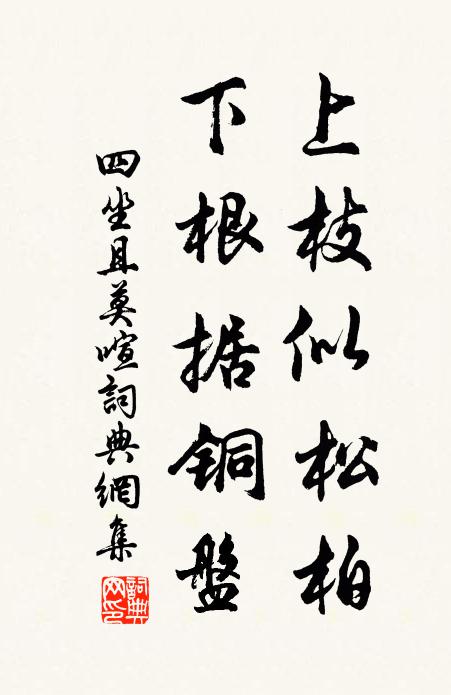 上枝似松柏
下根据銅盤
四坐且莫喧詞典網集
詞典網印